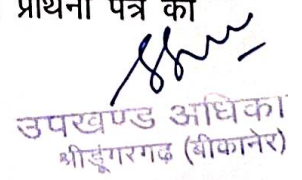 प्रार्थना पत्र का
उपखण्ड अधिका
श्रीडूंगरगढ़ (बीकानेर)